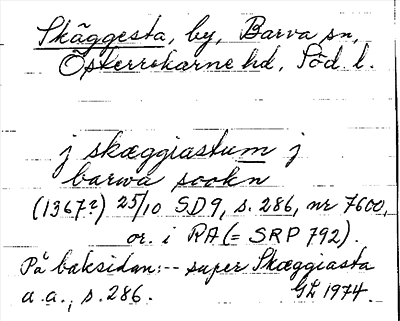 Skäggesta, by, Barva sn,
Österrekarne hd, Söd. l.
j skæggiastum j
barwa sookn
(1367?) 25/10 SD9, s. 286, nr 7600,
or. i RA (= SRP 792).
På baksidan: -- super Skæggiasta
a.a., s. 286. GL 1974.